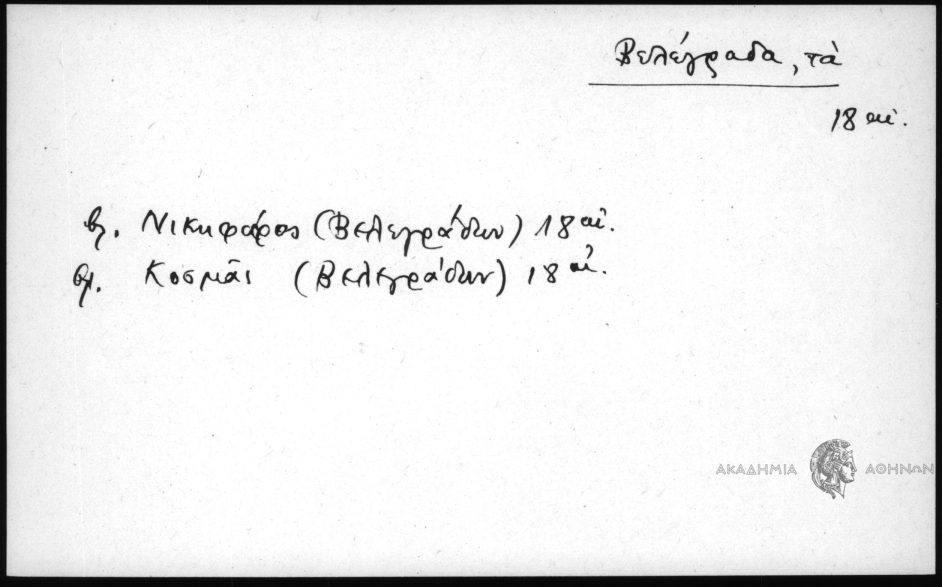 Βελέγραδα, τὰ
18 αἰ.
βλ. Νικηφόρος (Βελεγράδων) 18 αἰ.
βλ. Κοσμᾶς (Βελεγράδων) 18 αἰ.
ΑΚΑΔΗΜΙΑ ΑΘΗΝΩΝ